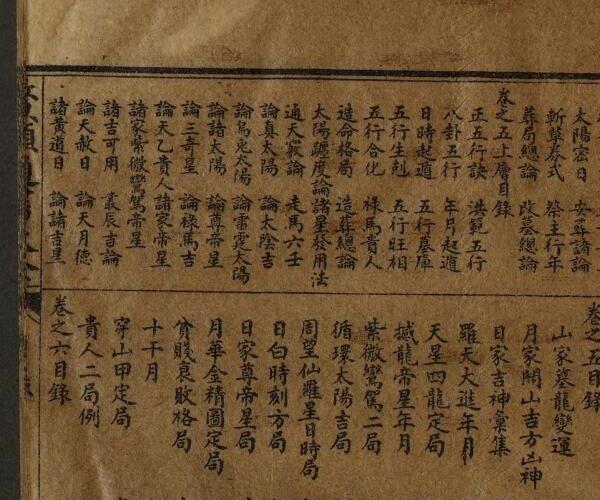 太陽宏日　安葬諸論
斬草券式　祭主行年
葬局總論　改墓總論
卷之五上層目錄
正五行訣　洪範五行
八卦五行　年月起遁
日時起遁　五行墓庫
五行生剋　五行旺相
五行合化　祿馬貴人
造命格局　造葬總論
太陽躔度論諸星發用法
通天竅論　走馬六壬
論真太陽　論太陰吉
論烏兔太陽　論雷霆太陽
論諸太陽　論尊帝星
論三奇星　論祿馬吉
論天乙貴人　諸家帝星
諸家紫微鸞駕帝星
諸吉可用　叢辰吉論
論天赦日　論天月德
諸黄道日　論諸吉星
卷之五目錄
山家墓龍變運
月家開山吉方凶神
日家吉神彙集
羅天大進年月
天星四龍定局
撼龍帝星年月
紫微鸞駕二局
循環太陽吉局
周望仙羅星日時局
日白時刻方局
日家尊帝星局
月華金精圖定局
貧賤衰敗格局
十干月
穿山甲定局
貴人二局例
卷之六目錄